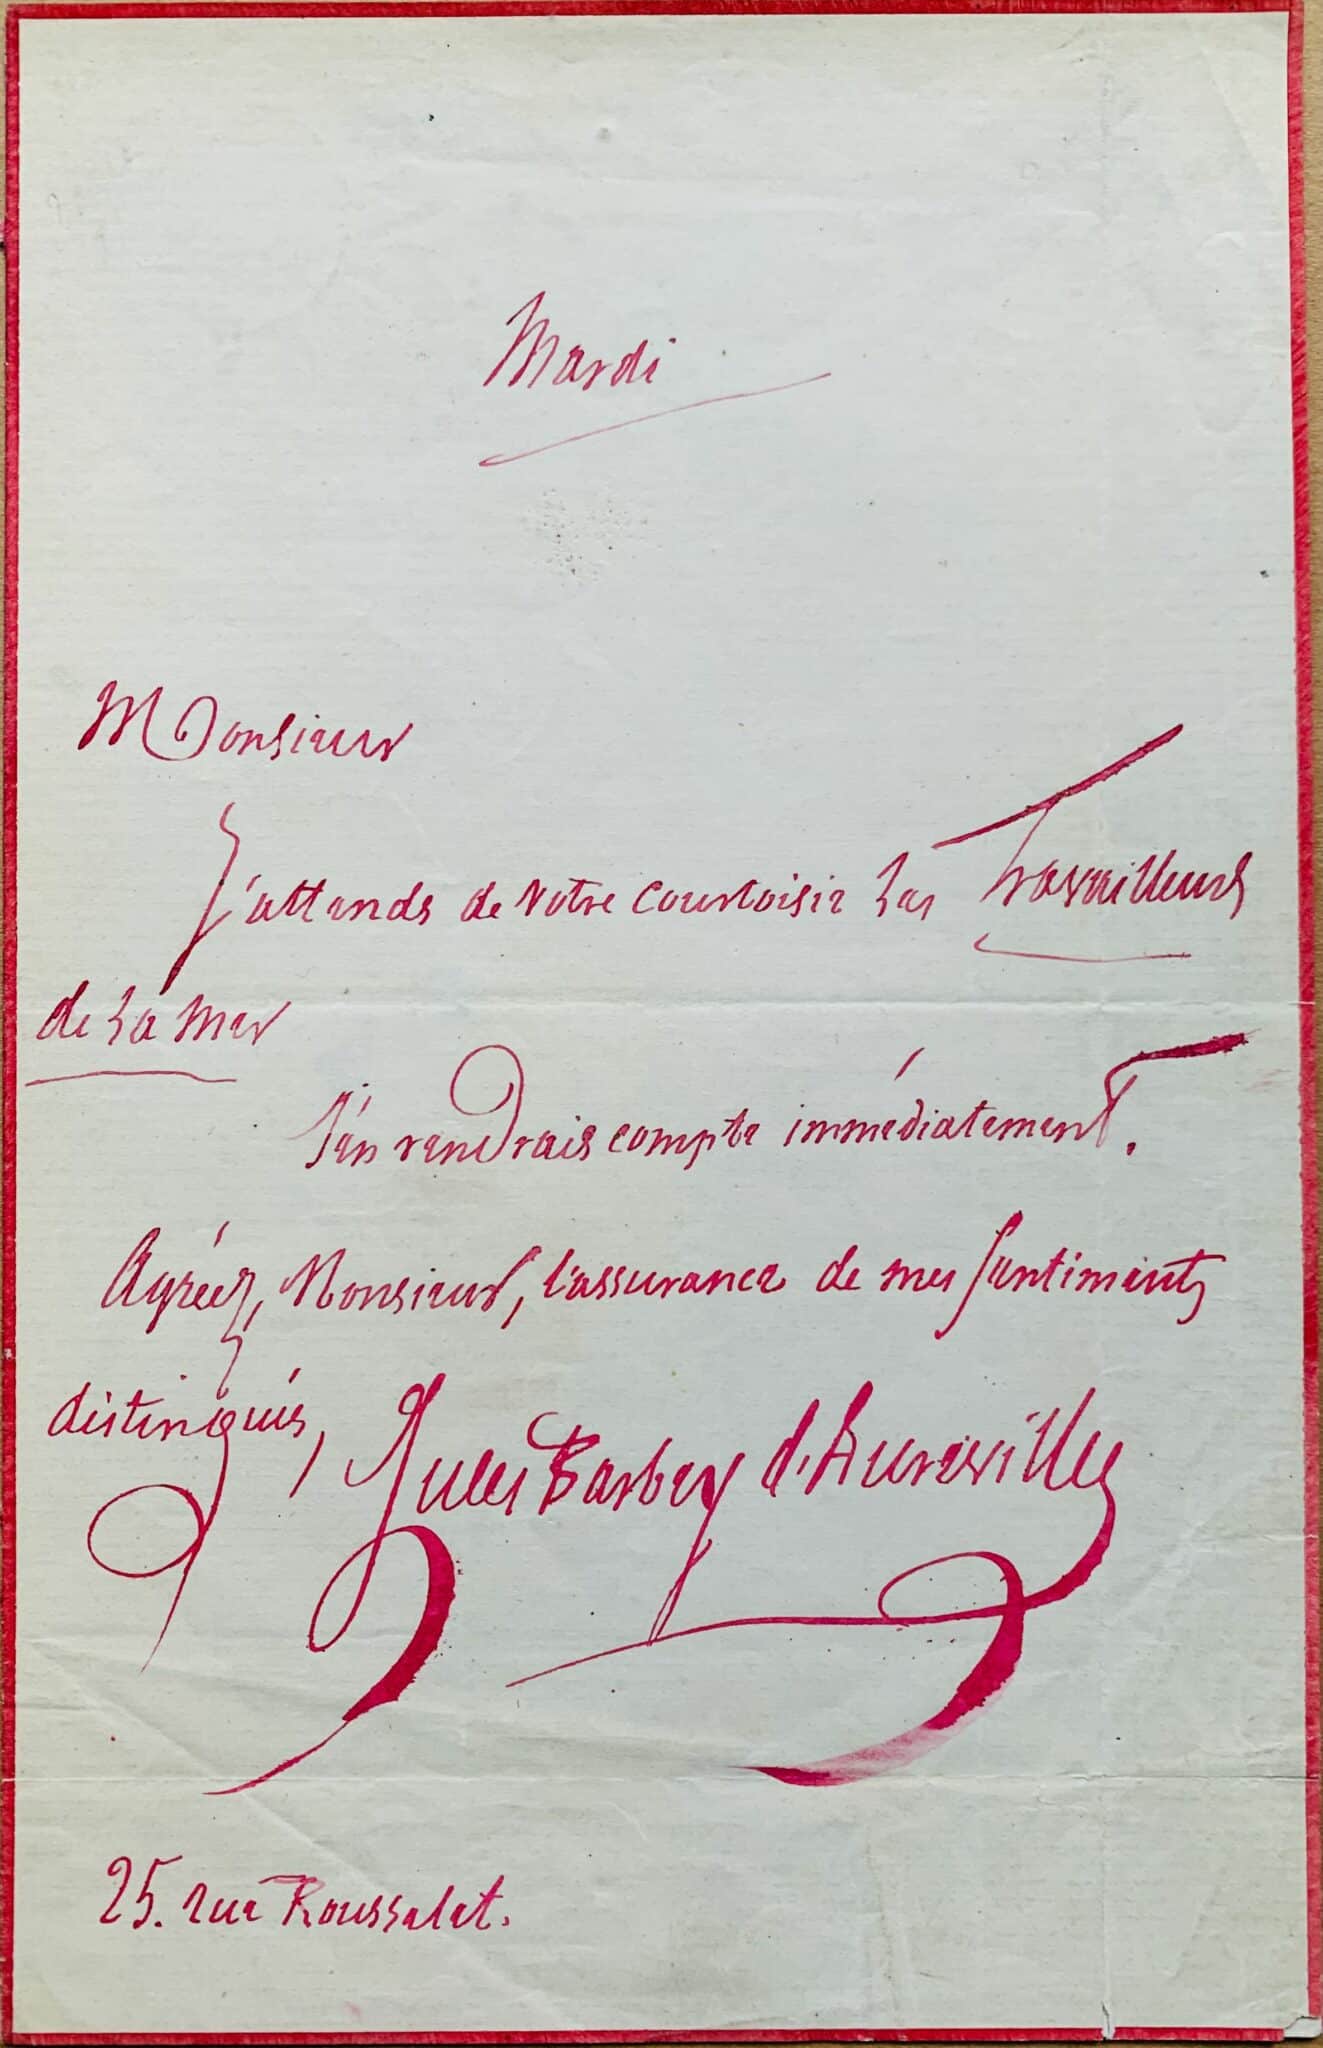 Mardi
Monsieur
J'attends de votre courtoisie Les Travailleurs
de La Mer
J'en rendrais compte immédiatement.
Agréez, Monsieur, l'assurance de mes sentiments
distingués, Jules Barbey d'Aurevilly
25. rue Rousselet.